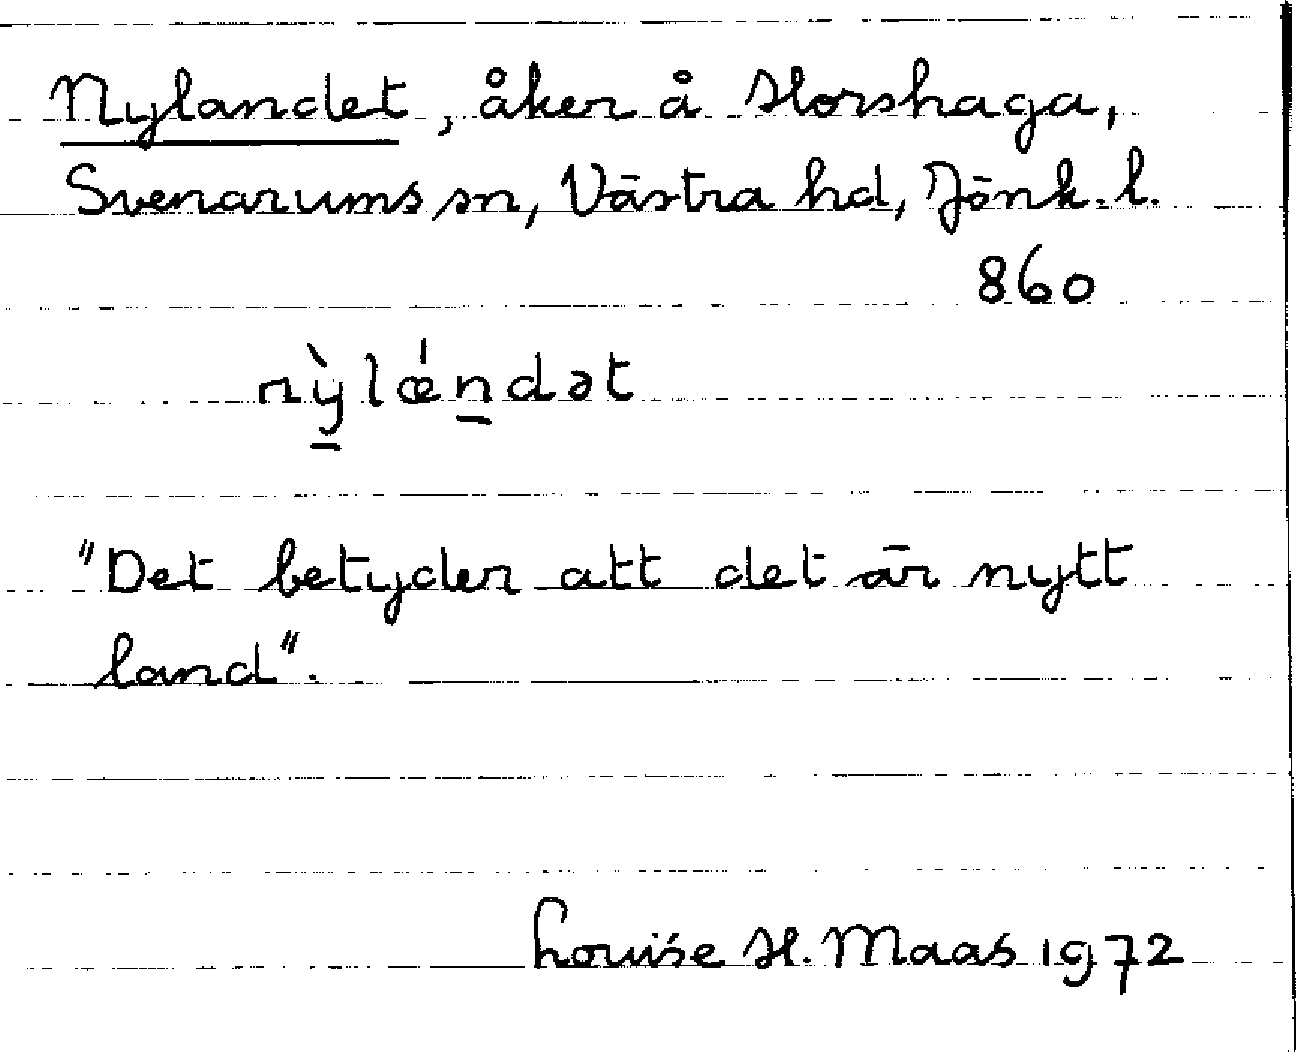 Nylandet, åker å Horshaga,
Svenarums sn, Västra hd, Jönk. l.
860
nỳ̠lǽn̠dət
"Det betyder att det är nytt
land".
Louise H. Maas 1972